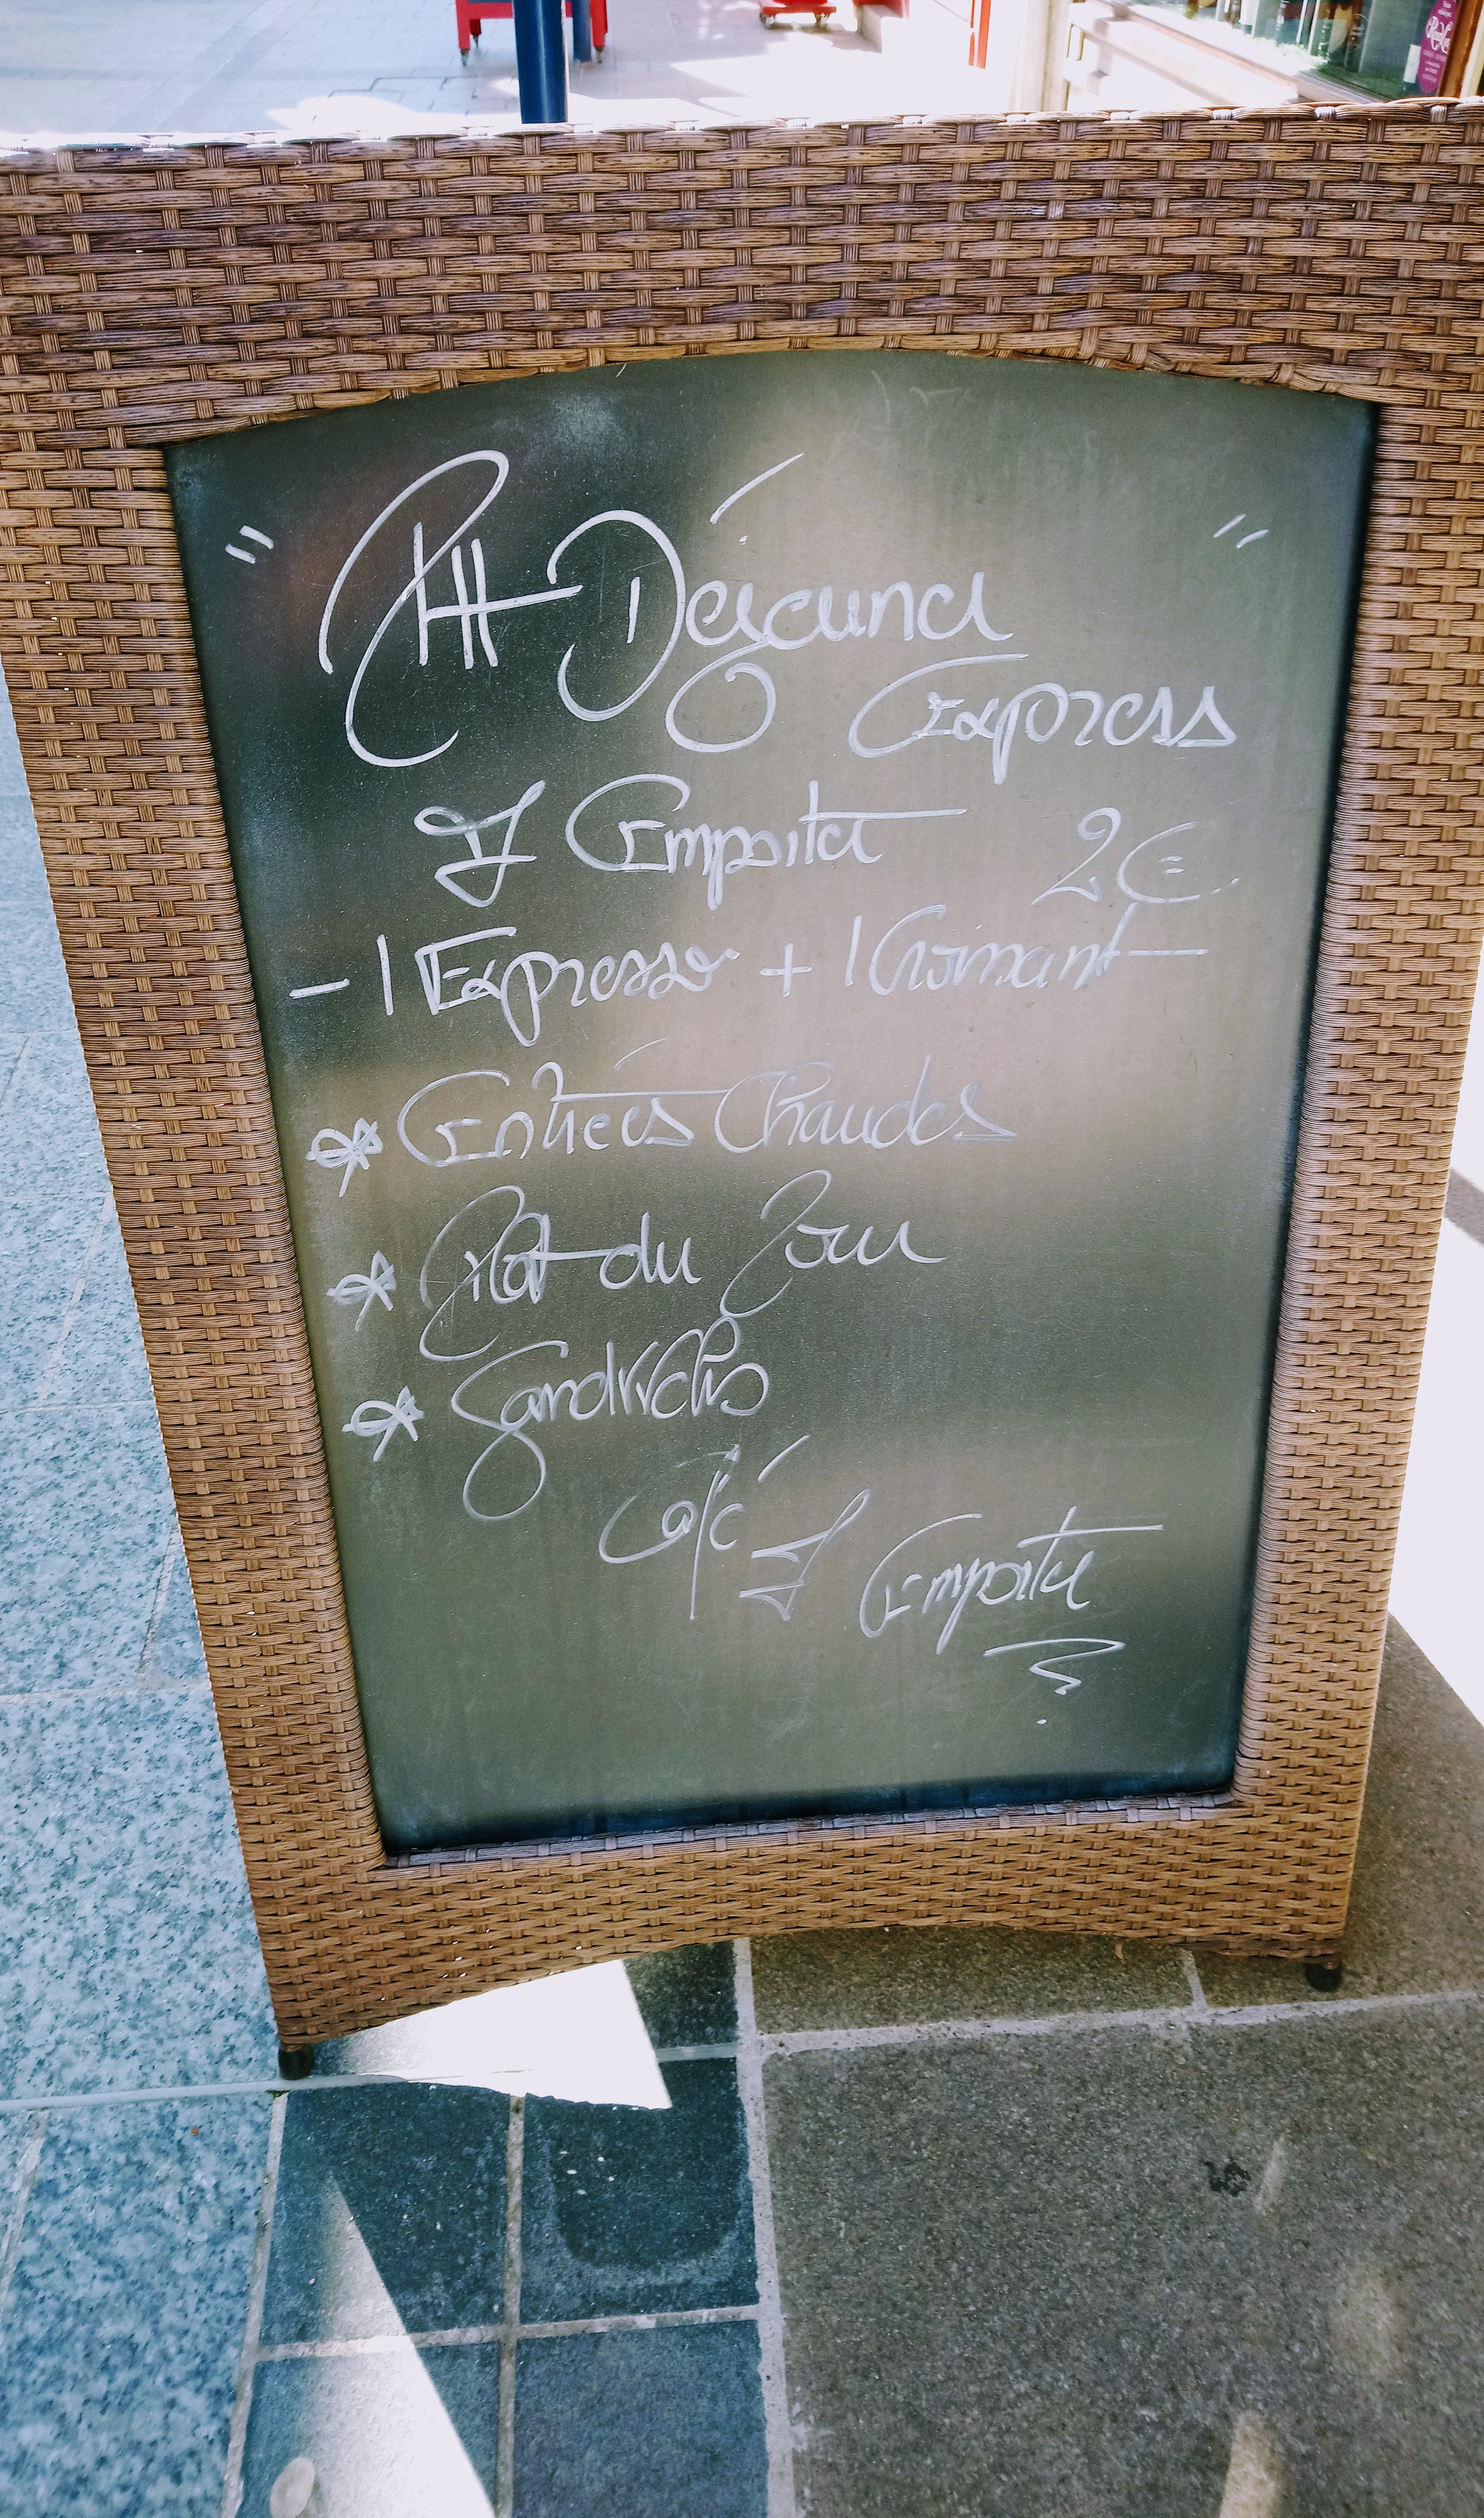 " Ptt Déjeuner "
Express
à Emporter 2€
- 1 Expresso + 1 Croissant -
* Entrées Chaudes
* Plat du Jour
* Sandwichs
Café à Emporter